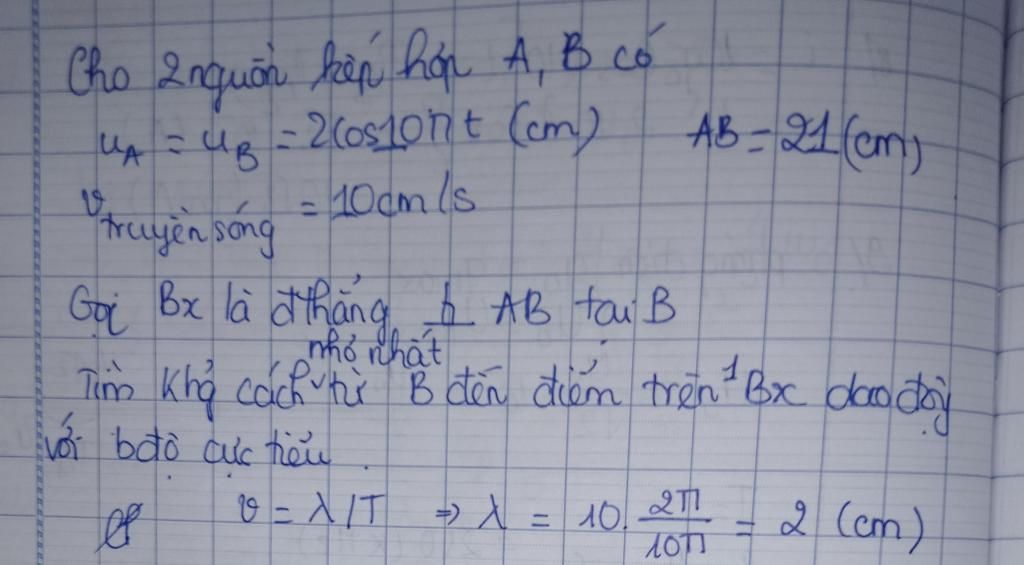 Cho 2 nguồn kết hợp A, B có
u_A = u_B = 2cos10πt (cm) AB = 21 (cm)
v truyền sóng = 10cm/s
Gọi Bx là đthẳng ⊥ AB tại B
nhỏ nhất
Tìm khg cách từ B đến điểm trên Bx dao độg
với bđộ cực tiểu.
v = λ/T ⇒ λ = 10. 2π/10π = 2 (cm)